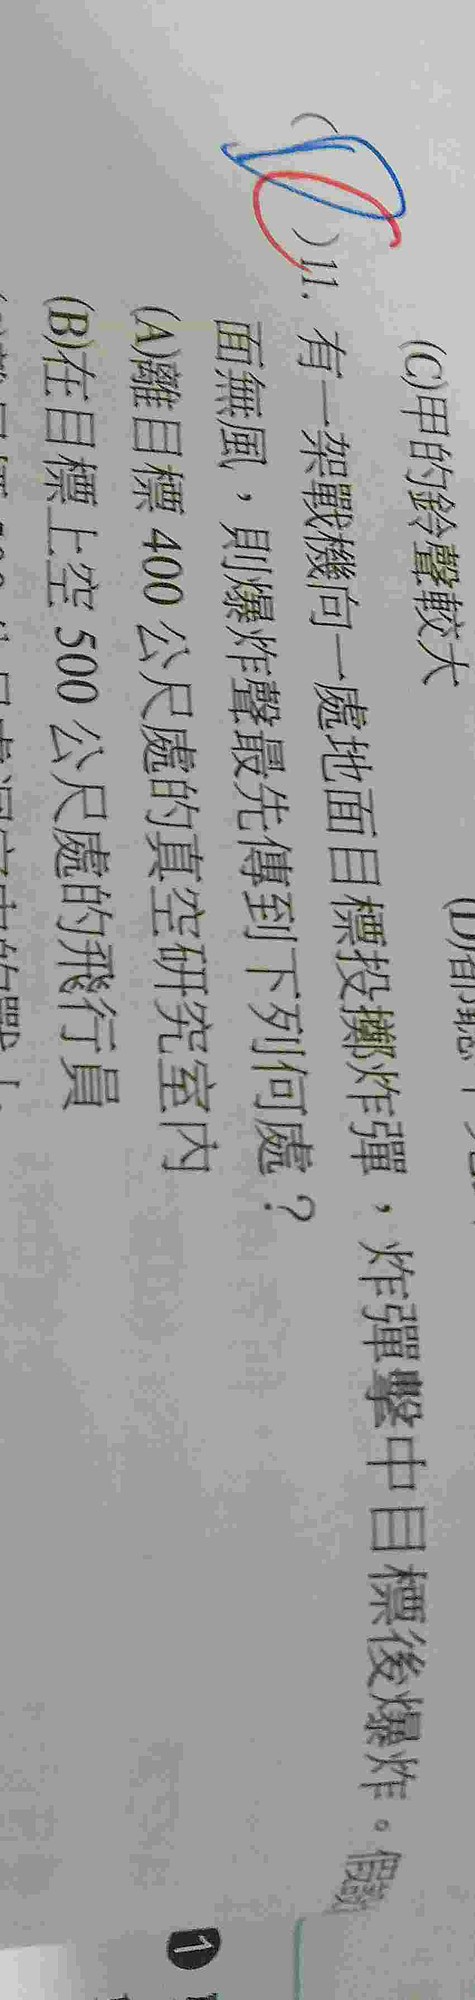 (C)甲的鈴聲較大
( )11. 有一架戰機向一處地面目標投擲炸彈，炸彈擊中目標後爆炸。假設
面無風，則爆炸聲最先傳到下列何處？
(A)離目標 400 公尺處的真空研究室內
(B)在目標上空 500 公尺處的飛行員
1